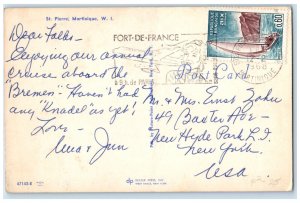 St. Pierre, Martinique, W. I.
FORT-DE-FRANCE
0,60
Dear Folks -
Enjoying our annual
cruise aboard the
"Bremen" - Haven't had
any "Knadel" as yet!
Love -
Post Card
1968
Mr. & Mrs. Ernest
49 Baxter Ave -
New Hyde Park L.I.
New York.
USA.